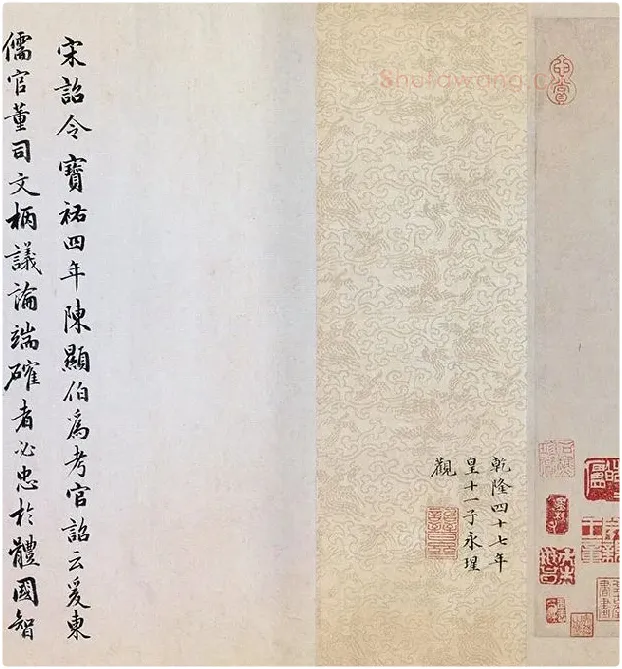 心賞
乾隆四十七年
皇十一子永瑆
觀
宋詔令寶祐四年陳顯伯爲考官詔云爰柬
儒官董司文柄議論端確者必忠於體國智
Shufawang.C